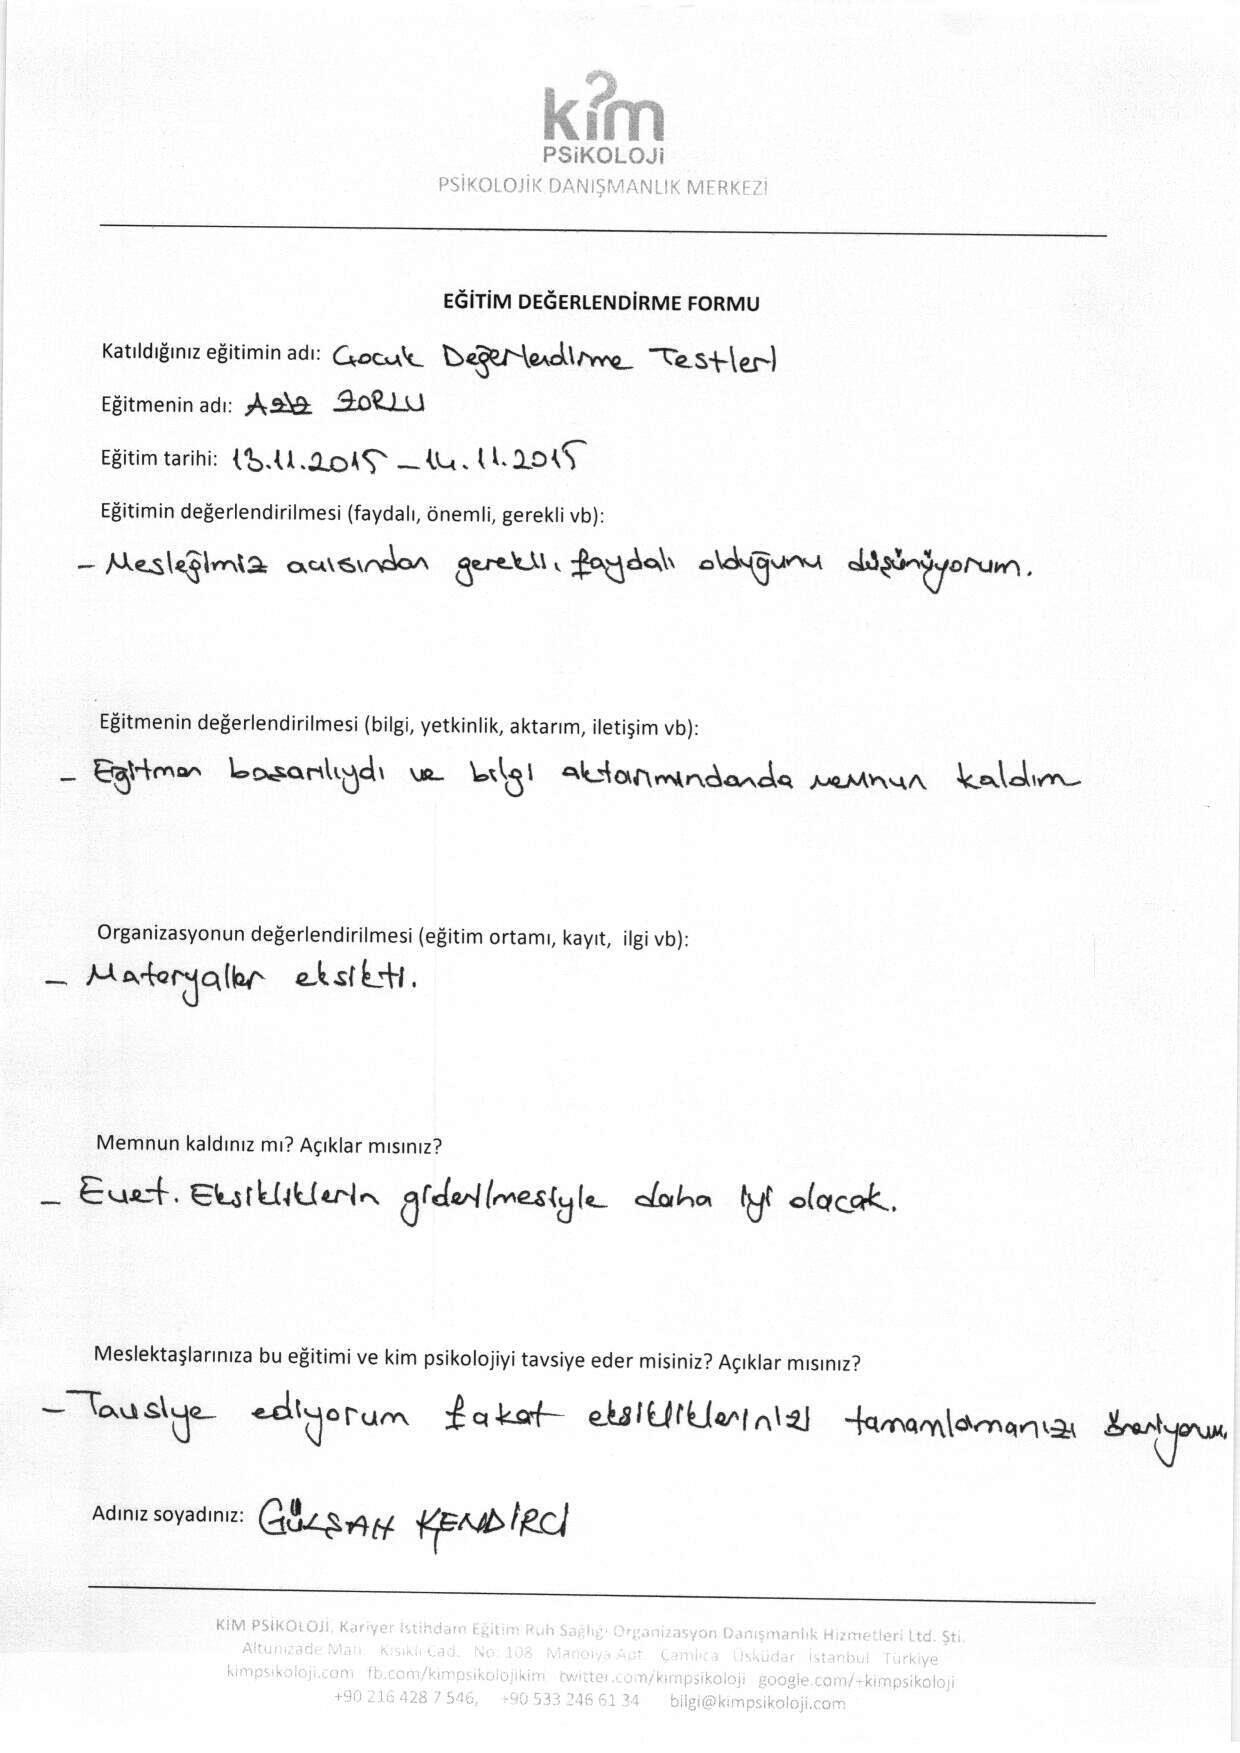 kim
PSiKOLOJi
PSİKOLOJİK DANIŞMANLIK MERKEZİ
EĞİTİM DEĞERLENDİRME FORMU
Katıldığınız eğitimin adı: Çocuk Değerlendirme Testleri
Eğitmenin adı: Aziz ZORLU
Eğitim tarihi: 13.11.2015 – 14.11.2015
Eğitimin değerlendirilmesi (faydalı, önemli, gerekli vb):
- Mesleğimiz acısından gerekli, faydalı olduğunu düşünüyorum.
Eğitmenin değerlendirilmesi (bilgi, yetkinlik, aktarım, iletişim vb):
- Eğitmen basarılıydı ve bilgi aktarımındanda memnun kaldım
Organizasyonun değerlendirilmesi (eğitim ortamı, kayıt, ilgi vb):
- Materyaller eksikti.
Memnun kaldınız mı? Açıklar mısınız?
- Evet. Eksikliklerin giderilmesiyle daha iyi olacak.
Meslektaşlarınıza bu eğitimi ve kim psikolojiyi tavsiye eder misiniz? Açıklar mısınız?
- Tavsiye ediyorum fakat eksikliklerinizi tamamlamanızı öneriyorum.
Adınız soyadınız: GÜLŞAH KENDİRCİ
KİM PSİKOLOJİ, Kariyer İstihdam Eğitim Ruh Sağlığı Organizasyon Danışmanlık Hizmetleri Ltd. Şti.
Altunizade Mah. Kısıklı Cad. No: 108 Manolya Apt. Çamlıca Üsküdar İstanbul Türkiye
kimpsikoloji.com fb.com/kimpsikolojikim twitter.com/kimpsikoloji google.com/+kimpsikoloji
+90 216 428 7 546, +90 533 246 61 34 bilgi@kimpsikoloji.com